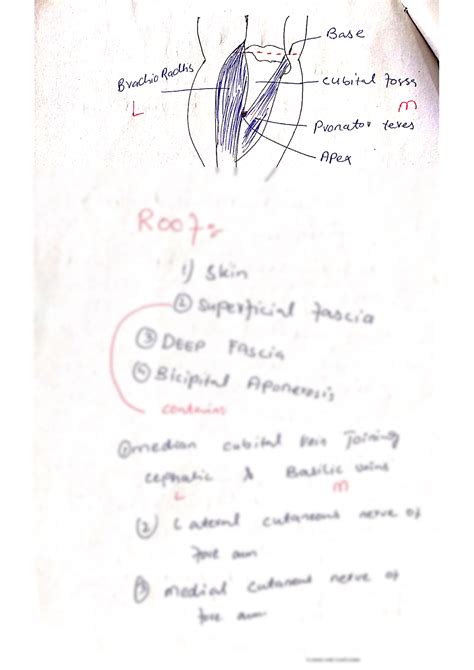 Base
Brachio Radlis
cubital fossa
L
m
Pronator teres
Apex
Roof:
1) Skin
② Superficial fascia
③ DEEP FASCIA
④ Bicipital Aponerosis
contains
① median cubital vein Joining
cephalic & Basilic veins
L
m
(2) Lateral cutaneous nerve of
fore arm
③ medial cutaneous nerve of
fore arm